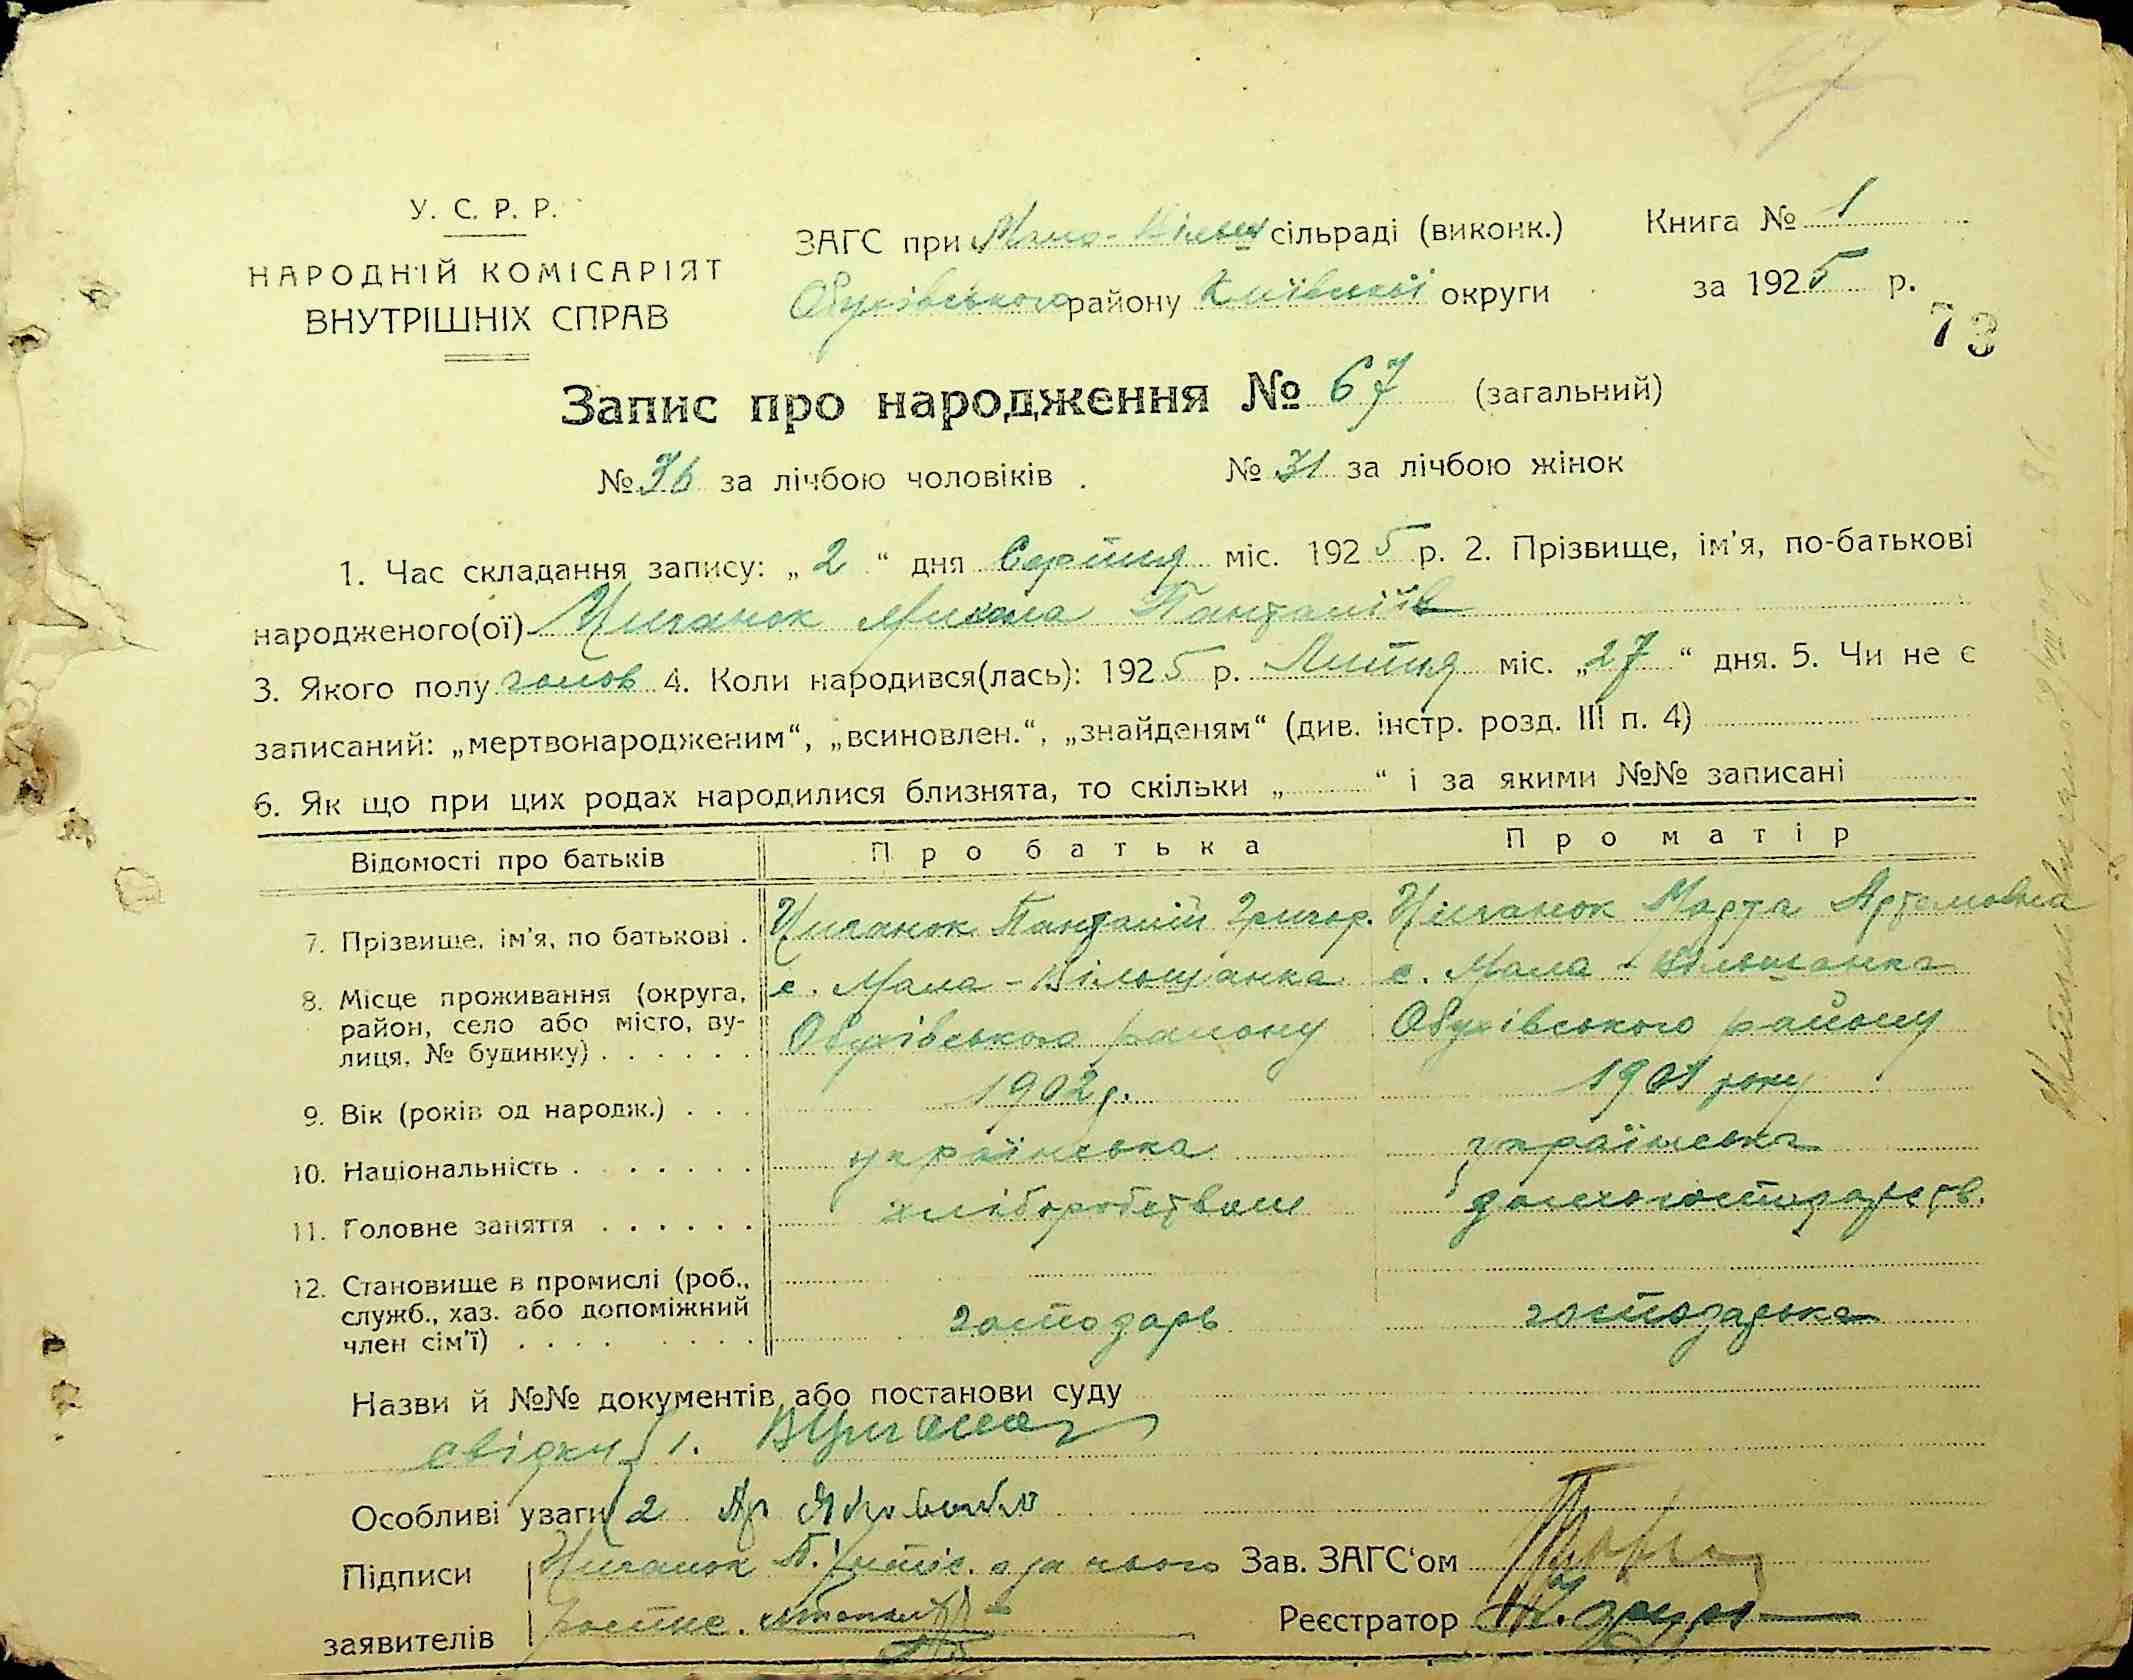 У. С. Р. Р.
НАРОДНІЙ КОМІСАРІЯТ
ВНУТРІШНІХ СПРАВ
ЗАГС при Мало-Вільщ сільраді (виконк.) Книга № 1
Обухівського району Київської округи за 1925 р.
73
Запис про народження № 67 (загальний)
№ 36 за лічбою чоловіків . № 31 за лічбою жінок
1. Час складання запису: „ 2 “ дня Серпня міс. 1925 р. 2. Прізвище, ім'я, по-батькові
народженого(ої) Циганок Микола Панталіїв
3. Якого полу чолов 4. Коли народився(лась): 1925 р. Липня міс. „27“ дня. 5. Чи не є
записаний: „мертвонародженим“, „всиновлен.“, „знайденям“ (див. інстр. розд. III п. 4)
6. Як що при цих родах народилися близнята, то скільки „ “ і за якими №№ записані
Відомості про батьків Про батька Про матір
7. Прізвище, ім'я, по батькові . Циганок Панталій Григор. Циганок Марта Артемовна
8. Місце проживання (округа, с. Мала-Вільщанка с. Мала-Вільщанка
район, село або місто, ву- Обухівського району Обухівського району
лиця, № будинку) . . . . . .
9. Вік (років од народж.) . . . 1902р. 1901 року
10. Національність . . . . . . . українська українська
11. Головне заняття . . . . . . хліборобством домогосподарств.
12. Становище в промислі (роб.,
служб., хаз. або допоміжний господарь господарька
член сім'ї) . . . . . . . .
Назви й №№ документів або постанови суду
свідки 1.
Особливі уваги 2
Підписи Циганок П. за нього Зав. ЗАГС'ом
заявителів роспис. Реєстратор